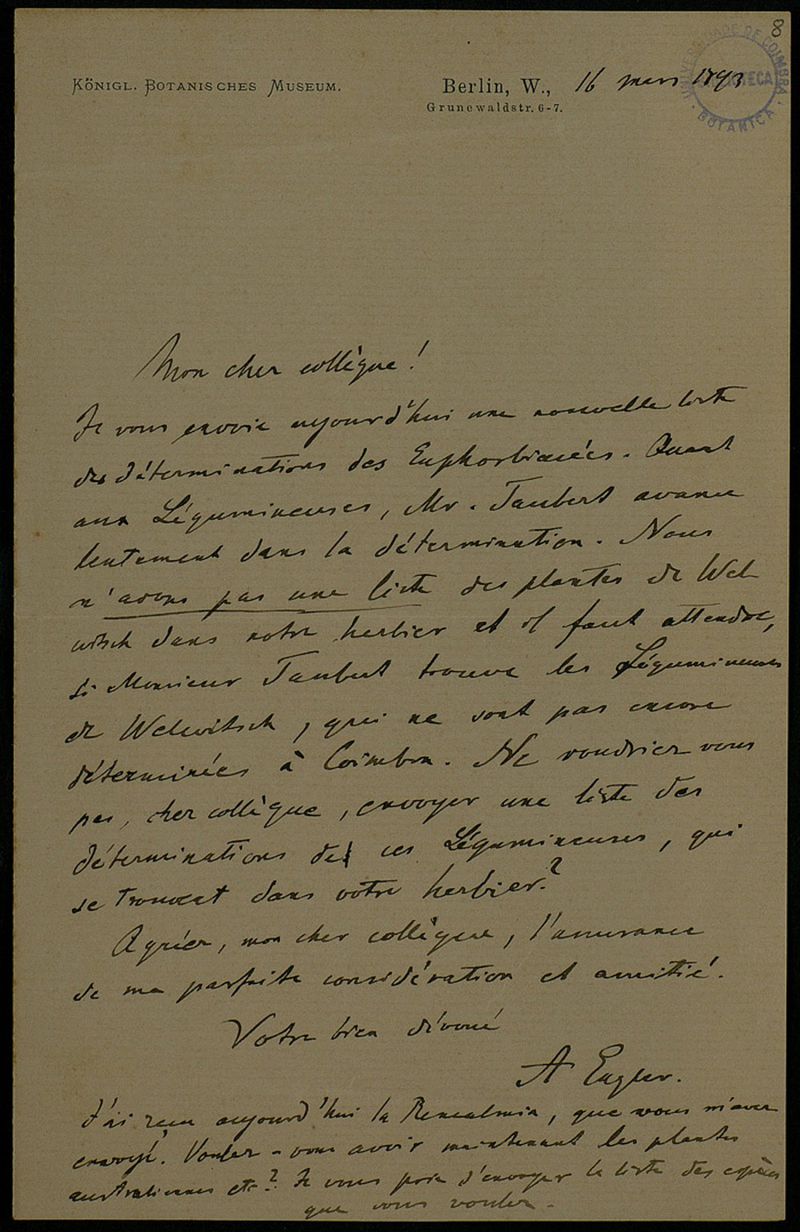 8
UNIVERSIDADE DE COIMBRA
BIBLIOTECA
BOTANICA
KÖNIGL. BOTANISCHES MUSEUM.
Berlin, W., 16 mars 1893
Grunewaldstr. 6-7.
Mon cher collègue!
Je vous envoie aujourd'hui une nouvelle liste
des déterminations des Euphorbiacées. Quant
aux Légumineuses, Mr. Taubert avance
lentement dans la détermination. Nous
n'avons pas une liste des plantes de Wel
witsch dans notre herbier et il faut attendre,
si Monsieur Taubert trouve les Légumineuses
de Welwitsch, qui ne sont pas encore
déterminées à Coimbra. Ne voudriez vous
pas, cher collègue, envoyer une liste des
déterminations de ces Légumineuses, qui
se trouvent dans votre herbier?
Agréez, mon cher collègue, l'assurance
de ma parfaite considération et amitié.
Votre bien dévoué
A Engler.
J'ai reçu aujourd'hui la Renealmia, que vous m'avez
envoyé. Voulez-vous avoir maintenant les plantes
australiennes etc? Je vous prie d'envoyer la liste des espèces
que vous voulez.